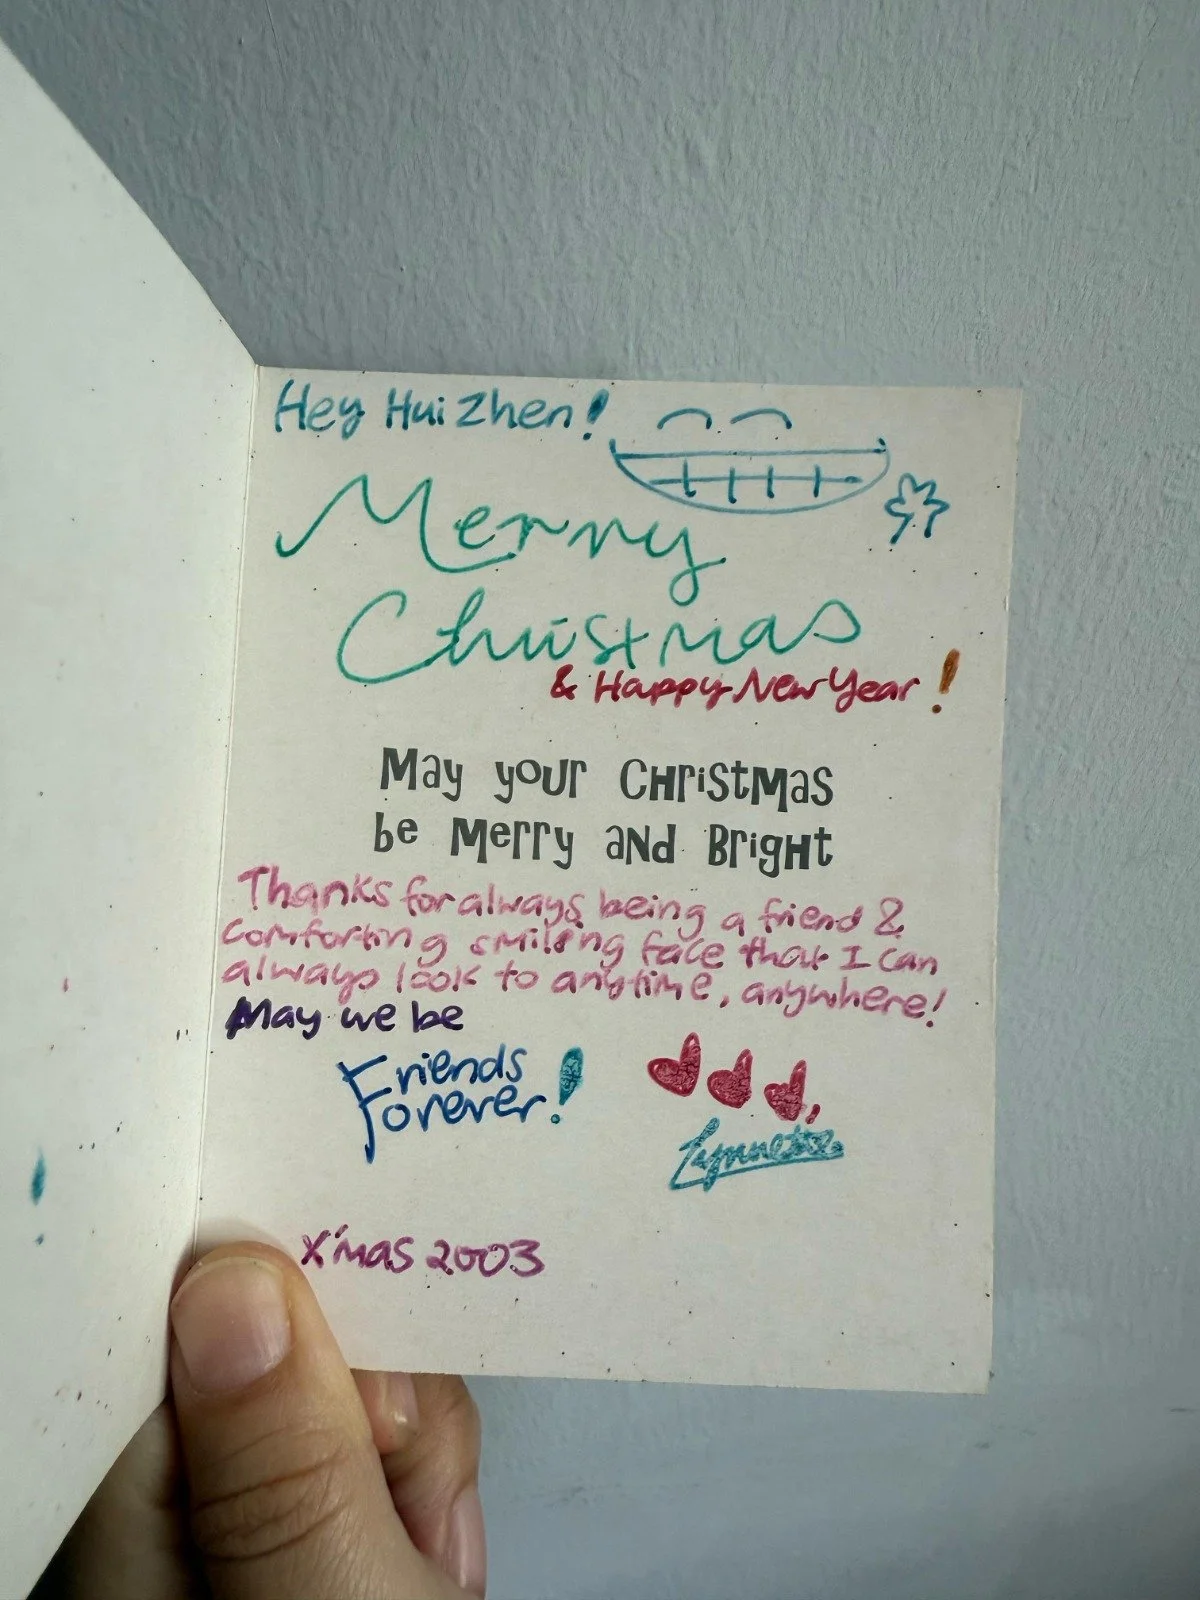 Hey Hui Zhen!
Merry
Christmas
& Happy New Year!
May your Christmas
be Merry and Bright
Thanks for always being a friend &
comforting smiling face that I can
always look to anytime, anywhere!
May we be
Friends
Forever!
Lynnette.
X'mas 2003